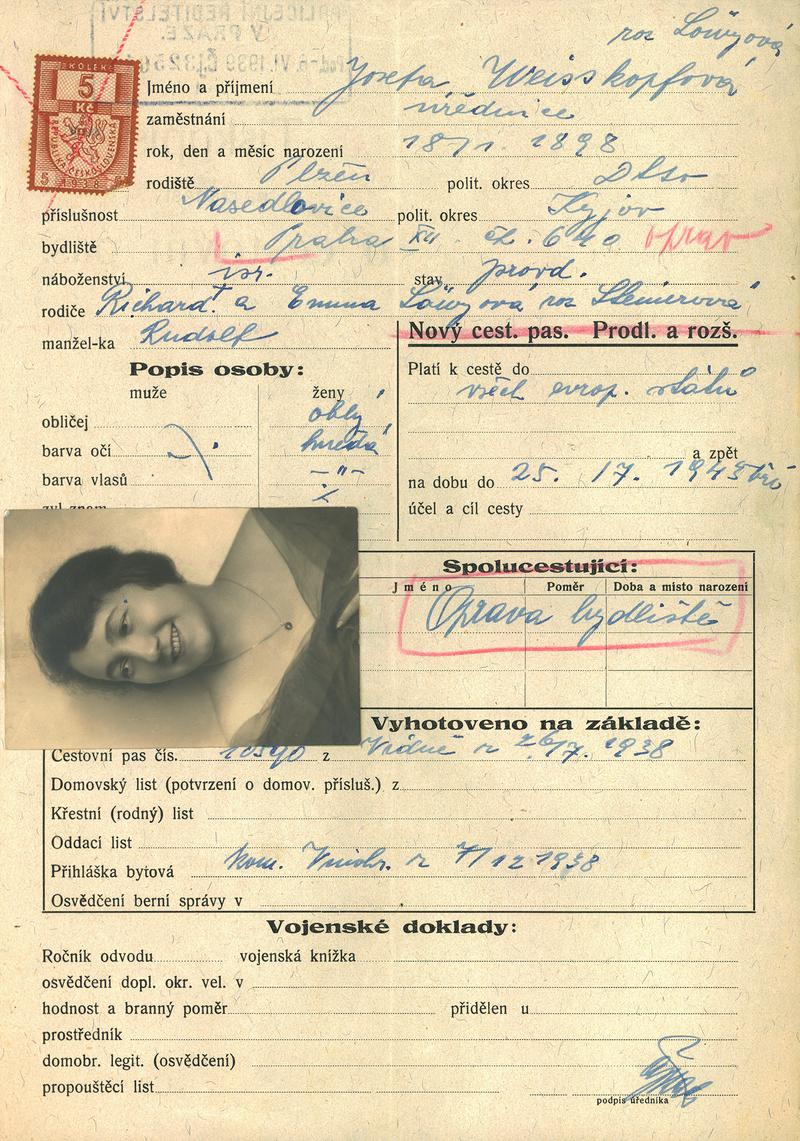 POLICEJNÍ ŘEDITELSTVÍ
V PRAZE.
VI. 1939
roz Löwyová
KOLEK
5
Kč
REPUBLIKA ČESKOSLOVENSKÁ
5 1938
Jméno a příjmení Josefa Weisskopfová
zaměstnání úřednice
rok, den a měsíc narození 1898
rodiště Plzeň polit. okres Dtto
příslušnost Nasedlovice polit. okres Kyjov
bydliště Praha XII. čk. 640 oprav
náboženství isr. stav provd.
rodiče Richard † a Emma Löwyová roz Steinerová
manžel-ka Rudolf
Nový cest. pas. Prodl. a rozš.
Popis osoby:
muže ženy
obličej oblý
barva očí hnědá
barva vlasů -"-
zvl. znam.
Platí k cestě do
všech evrop. států
a zpět
na dobu do 25. /7. 1943
účel a cíl cesty
Spolucestující:
Jméno Poměr Doba a místo narození
Oprava bydliště
Vyhotoveno na základě:
Cestovní pas čís. 10590 z Vídně z 26/7. 1938
Domovský list (potvrzení o domov. přísluš.) z
Křestní (rodný) list
Oddací list
Přihláška bytová kom. Vinohr. z 7/12 1938
Osvědčení berní správy v
Vojenské doklady:
Ročník odvodu vojenská knížka
osvědčení dopl. okr. vel. v
hodnost a branný poměr přidělen u
prostředník
domobr. legit. (osvědčení)
propouštěcí list
podpis úředníka